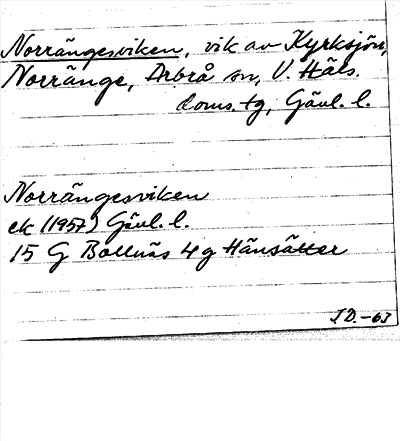 Norrängesviken, vik av Kyrksjön,
Norränge, Arbrå sn, V. Häls.
doms. tg, Gävl. l.
Norrängesviken
ek (1957) Gävl. l.
15 G Bollnäs 4 g Hänsätter
I D. -63